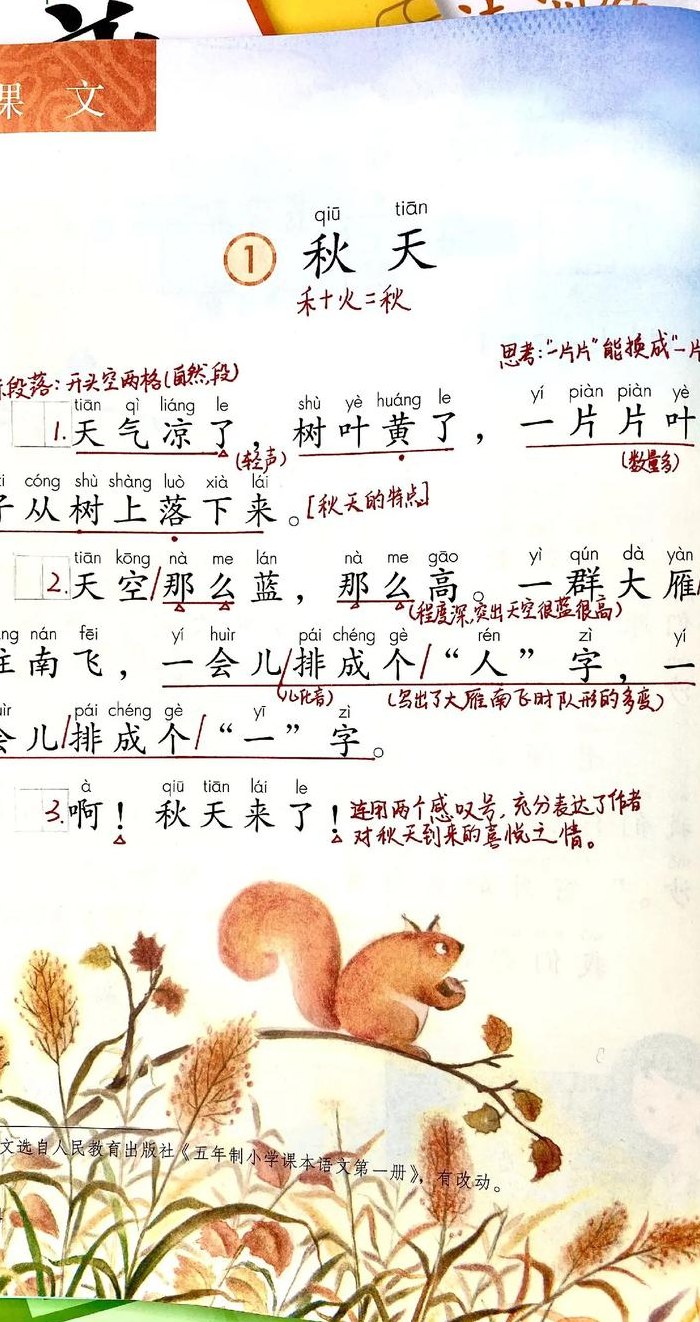 课文
qiū tiān
1 秋天
禾+火=秋
思考:"一片片"能换成"一片
段落:开头空两格(自然段)
tiān qì liáng le shù yè huáng le yí piàn piàn yè
1.天气凉了,树叶黄了,一片片叶
(轻声) (数量多)
cóng shù shàng luò xià lái
子从树上落下来。[秋天的特点]
tiān kōng nà me lán nà me gāo yì qún dà yàn
2.天空/那么蓝,那么高。一群大雁/
(程度深,突出天空很蓝很高)
nán fēi yí huìr pái chéng gè rén zì yí
往南飞,一会儿/排成个/“人”字,一
(儿化音) (写出了大雁南飞时队形的多变)
pái chéng gè yī zì
会儿/排成个/“一”字。
à qiū tiān lái le
3.啊!秋天来了!连用两个感叹号,充分表达了作者
对秋天到来的喜悦之情。
文选自人民教育出版社《五年制小学课本语文第一册》,有改动。